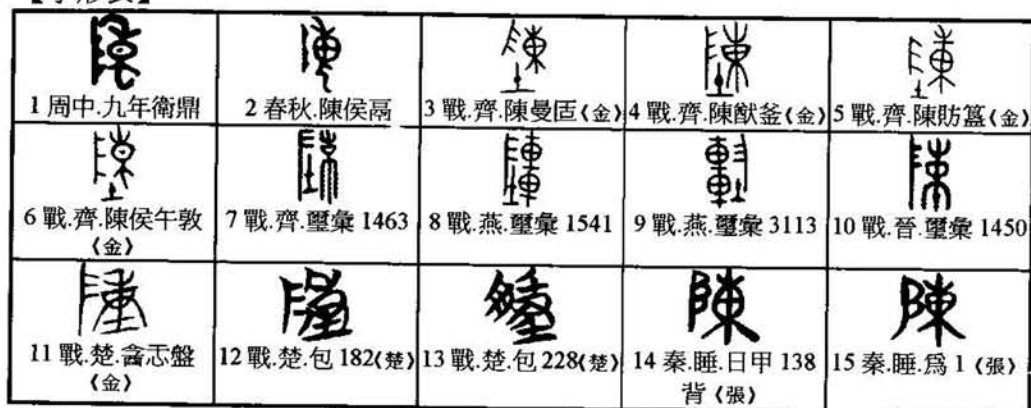 1 周中.九年衛鼎
2 春秋.陳侯鬲
3 戰.齊.陳曼匜〈金〉
4 戰.齊.陳猷釜〈金〉
5 戰.齊.陳肪簋〈金〉
6 戰.齊.陳侯午敦
〈金〉
7 戰.齊.璽彙 1463
8 戰.燕.璽彙 1541
9 戰.燕.璽彙 3113
10 戰.晉.璽彙 1450
11 戰.楚.酓忎盤
〈金〉
12 戰.楚.包 182〈楚〉
13 戰.楚.包 228〈楚〉
14 秦.睡.日甲 138
背〈張〉
15 秦.睡.爲 1〈張〉